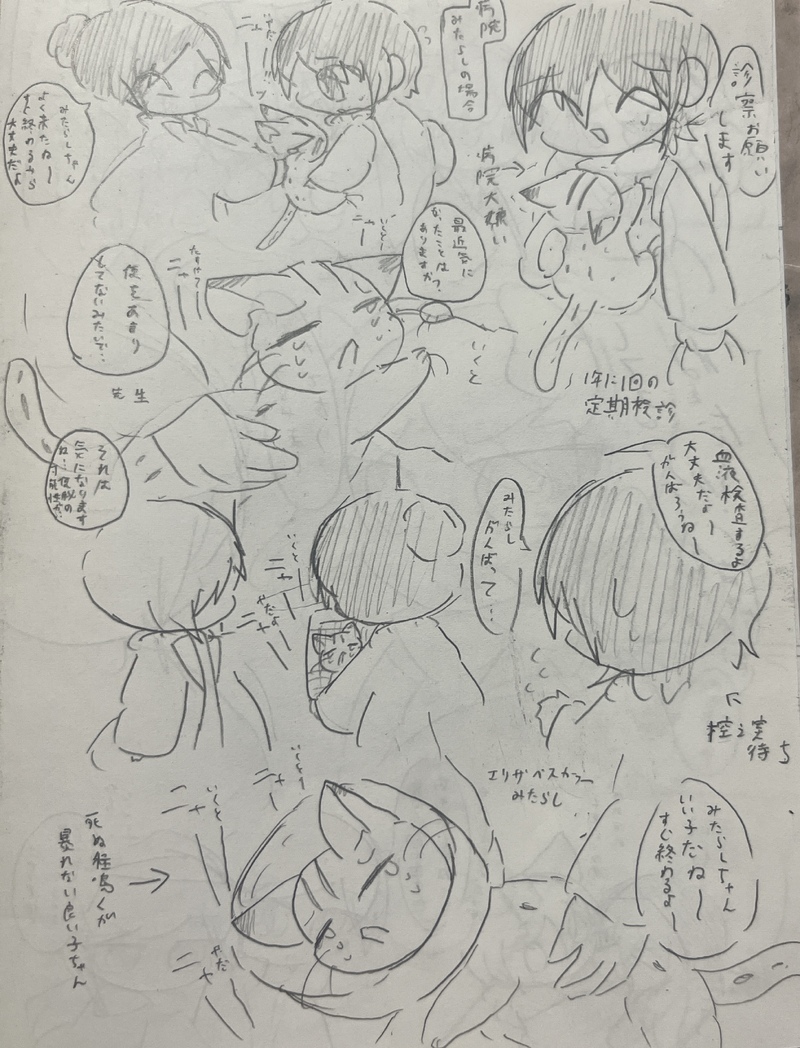 病院
みたらしの場合
診察お願い
します
病院大嫌い
1年に1回の
定期検診
ニャー
みたらしちゃん
よく来たねー
すぐ終わるから
大丈夫だよ
最近気に
なったことは
ありますか?
いくとー
ニャー
たすけて
ニャー
便をあまり
もてないみたいで…
いくと
先生
それは
気になります
ね…
血液検査するよ
大丈夫だよー
がんばろうねー
みたらし
がんばって…
いくとー
ニャー
やだよ
ニャー
控え室
待ち
エリザベスカラー
みたらし
みたらしちゃん
いい子だねー
すぐ終わるよー
いくとー
ニャー
いくと
ニャー
やだ
ニャー
死ぬ程鳴くが
暴れない良い子ちゃん